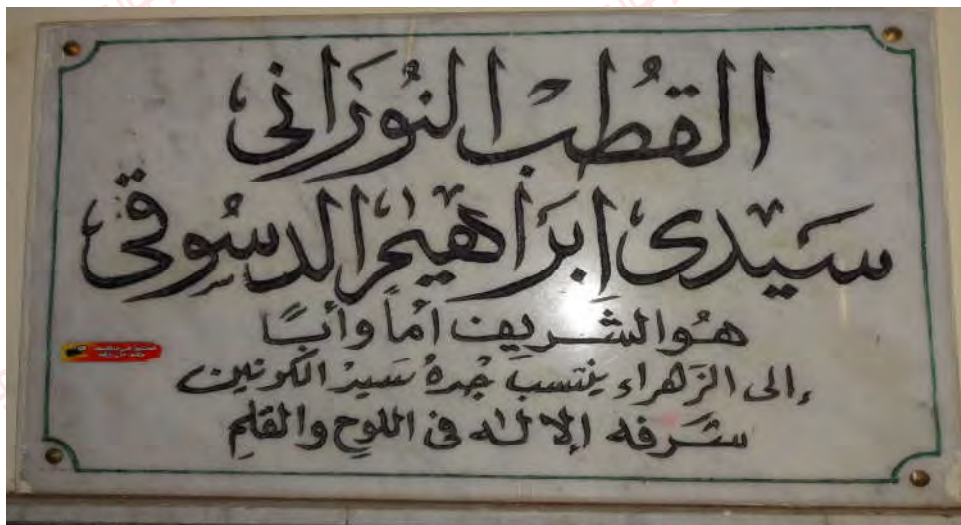 القطب النوراني
سيدى ابراهيم الدسوقى
هو الشريف أماً وأباً
إلى الزهراء ينتسب جده سيد الكونين
شرفه الإله فى اللوح والقلم